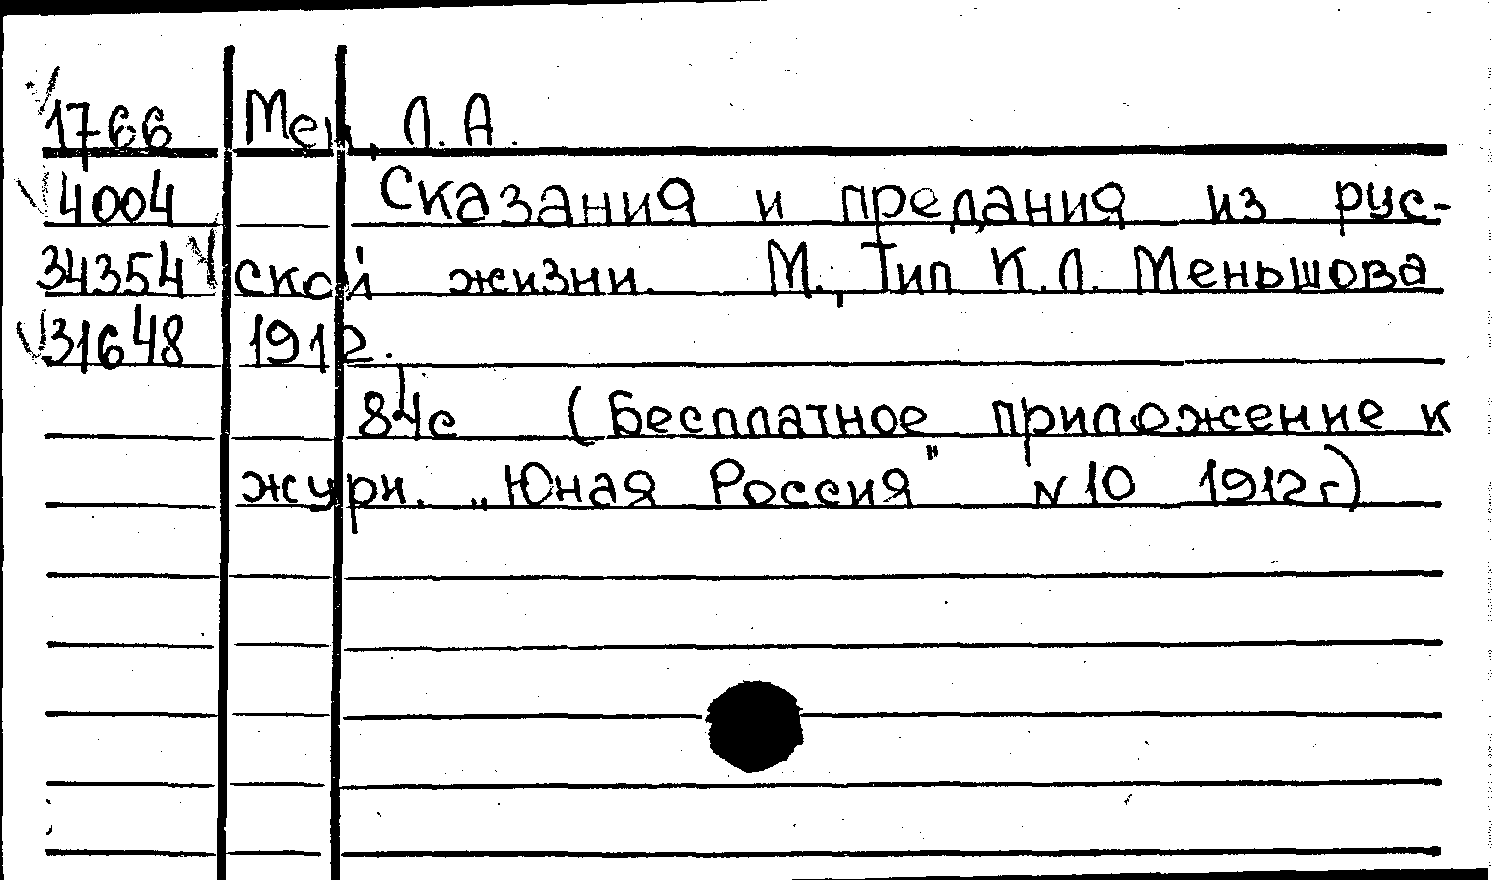 1766 Мей, Л. А.
4004 Сказания и предания из рус-
34354 ской жизни. М., Тип К.Л. Меньшова
31648 1912.
84с (Бесплатное приложение к
журн. „Юная Россия" N10 1912г)